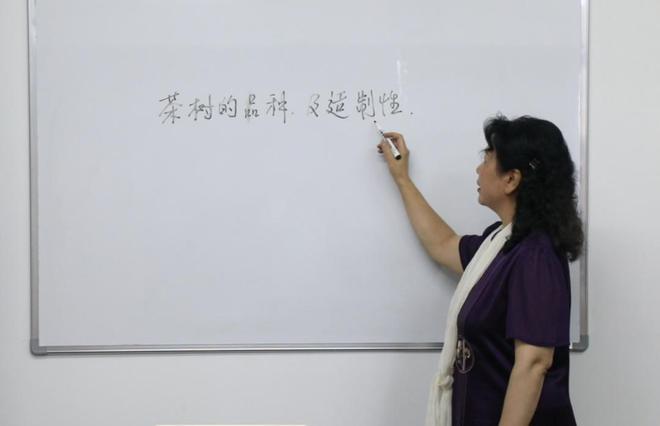 茶树的品种.及适制性.